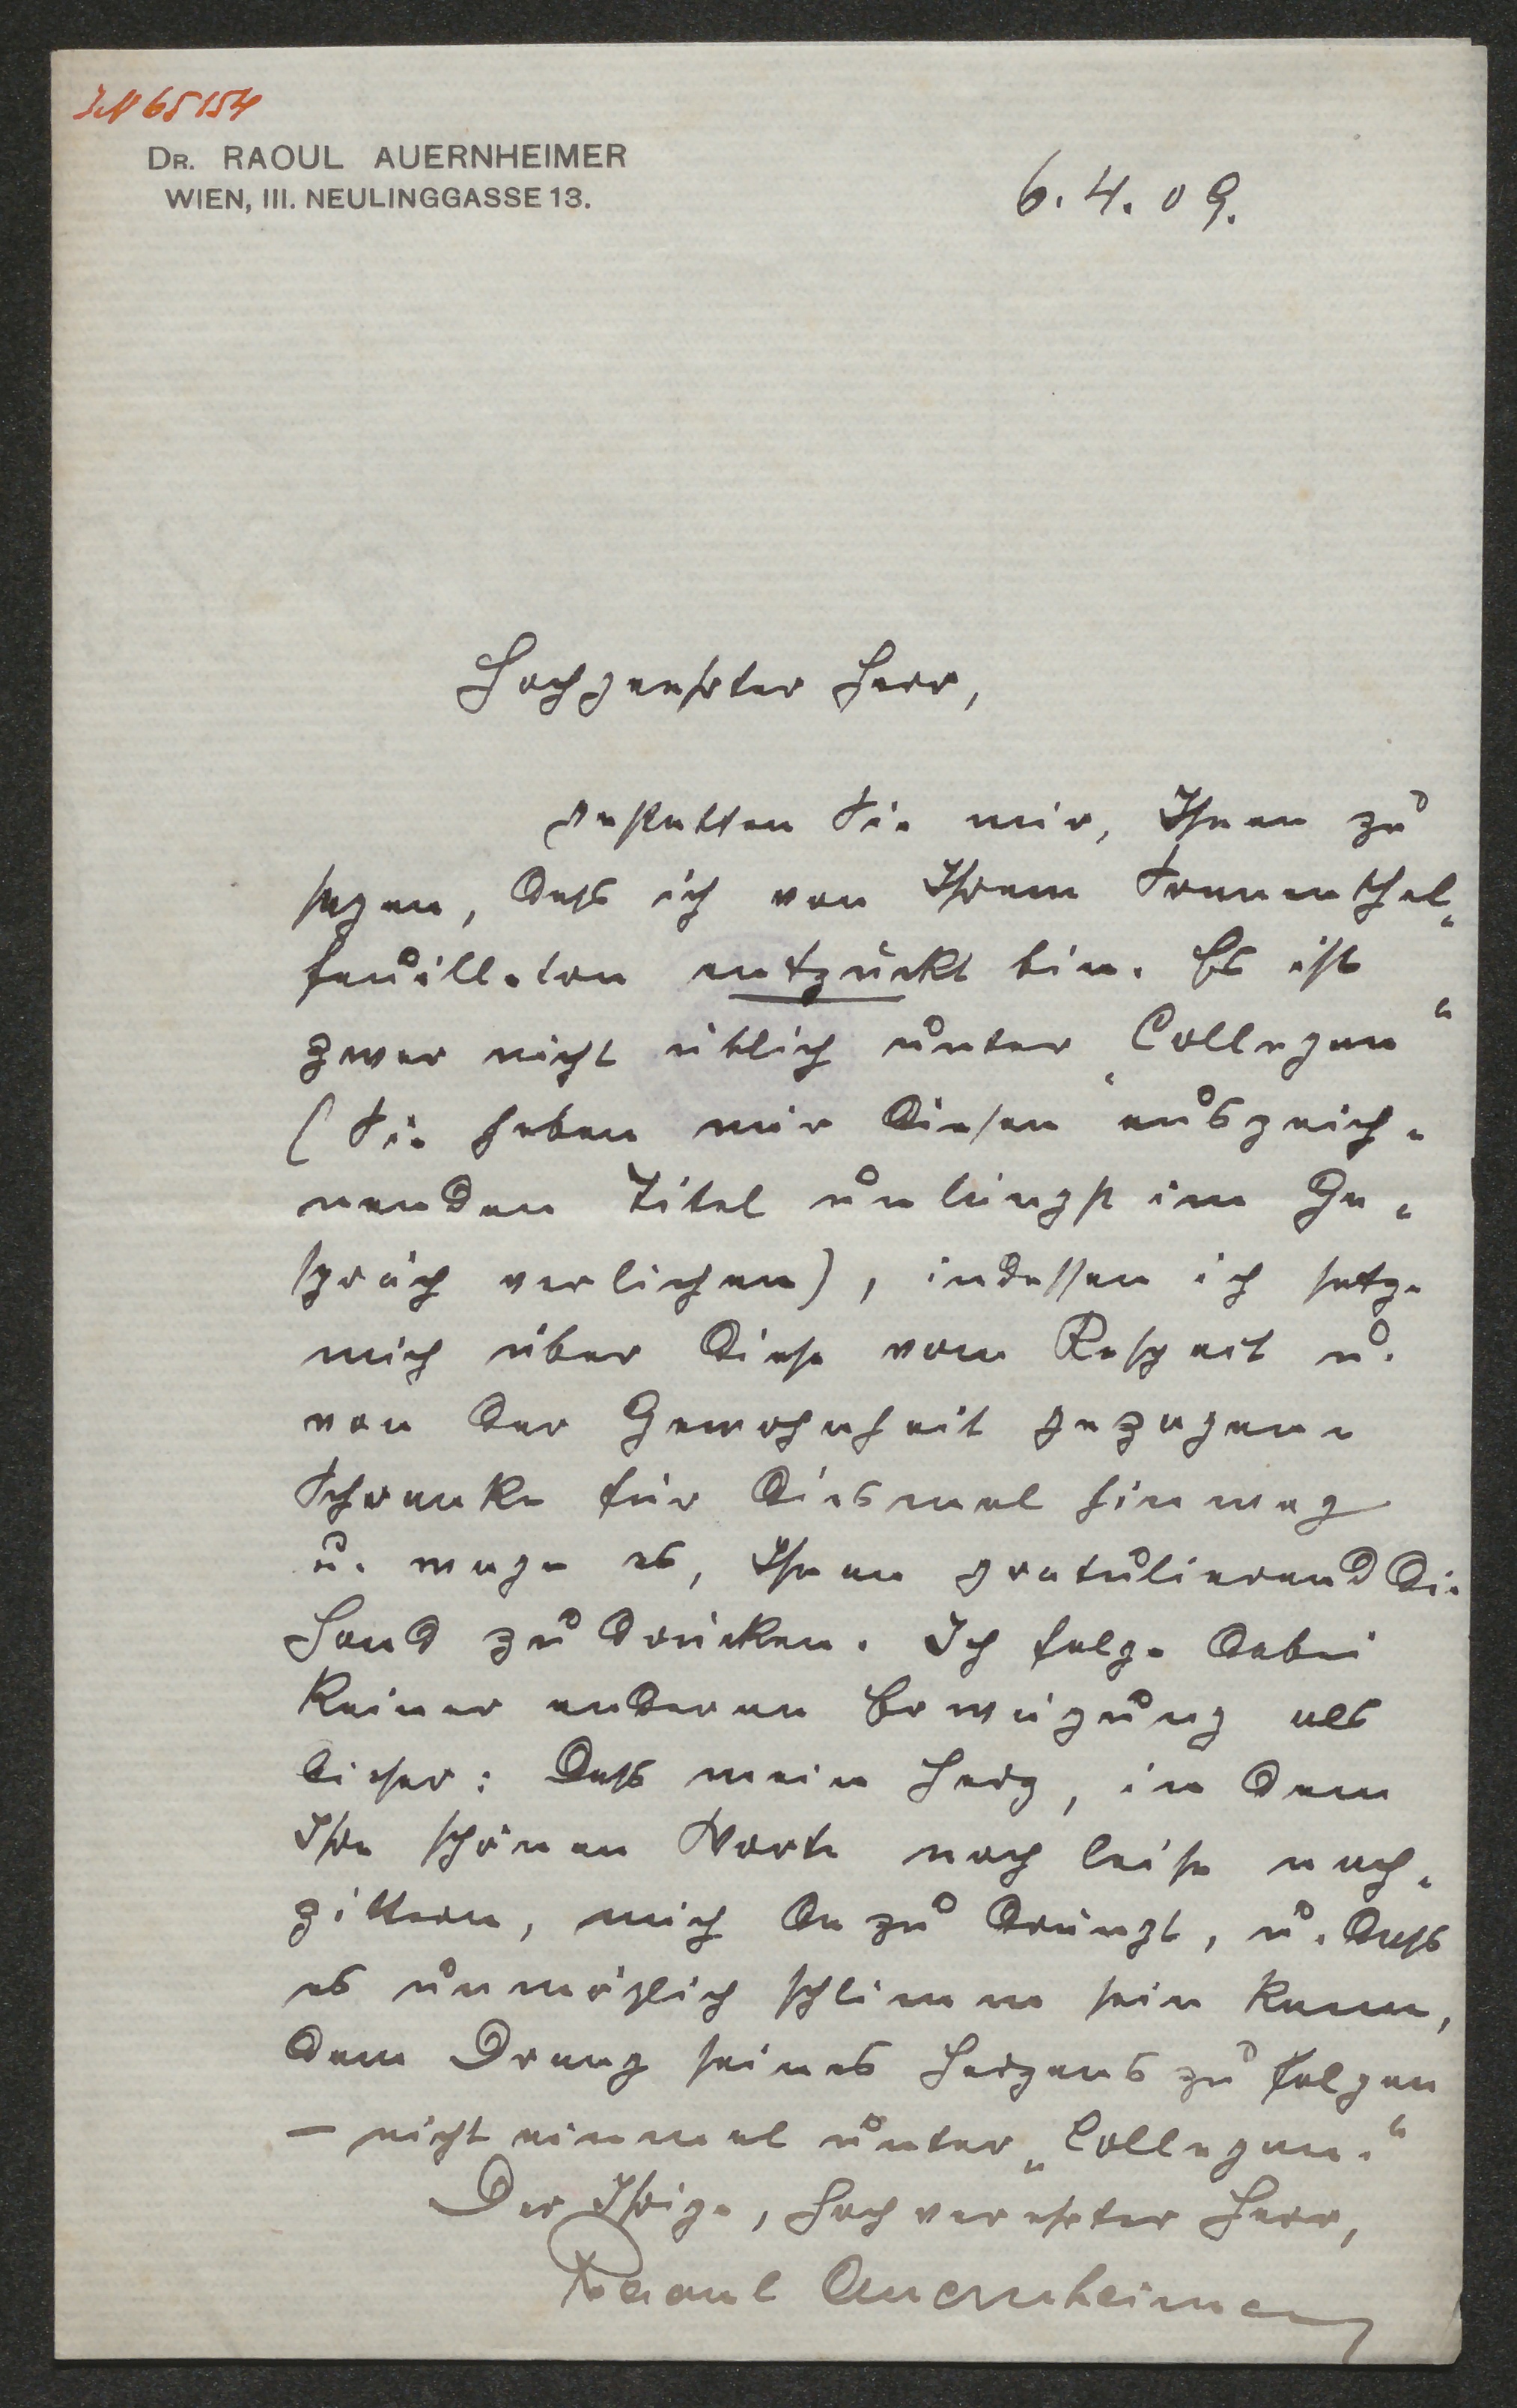 IN 65154
DR. RAOUL AUERNHEIMER
WIEN, III. NEULINGGASSE 13.
6.4.09.
Hochgeehrter Herr,
gestatten Sie mir, Ihnen zu
sagen, daß ich von Ihrem Sonnenthal-
feuilleton entzückt bin. Es ist
zwar nicht üblich unter „Collegen“
(Sie haben mir diesen auszeich-
nenden Titel unlängst im Ge-
spräch verliehen), indessen ich setze
mich über diese vom Respect u.
von der Gewohnheit gezogene
Schranke für diesmal hinweg
u. wage es, Ihnen gratulierend die
Hand zu drücken. Ich folge dabei
keiner anderen Erwägung als
dieser: daß mein Herz, in dem
Ihre schönen Worte noch leise nach-
zittern, mich dazu drängt, u. daß
es unmöglich schlimm sein kann,
dem Drang seines Herzens zu folgen
— nicht einmal unter „Collegen.“
Der Ihrige, hochverehrter Herr,
Raoul Auernheimer